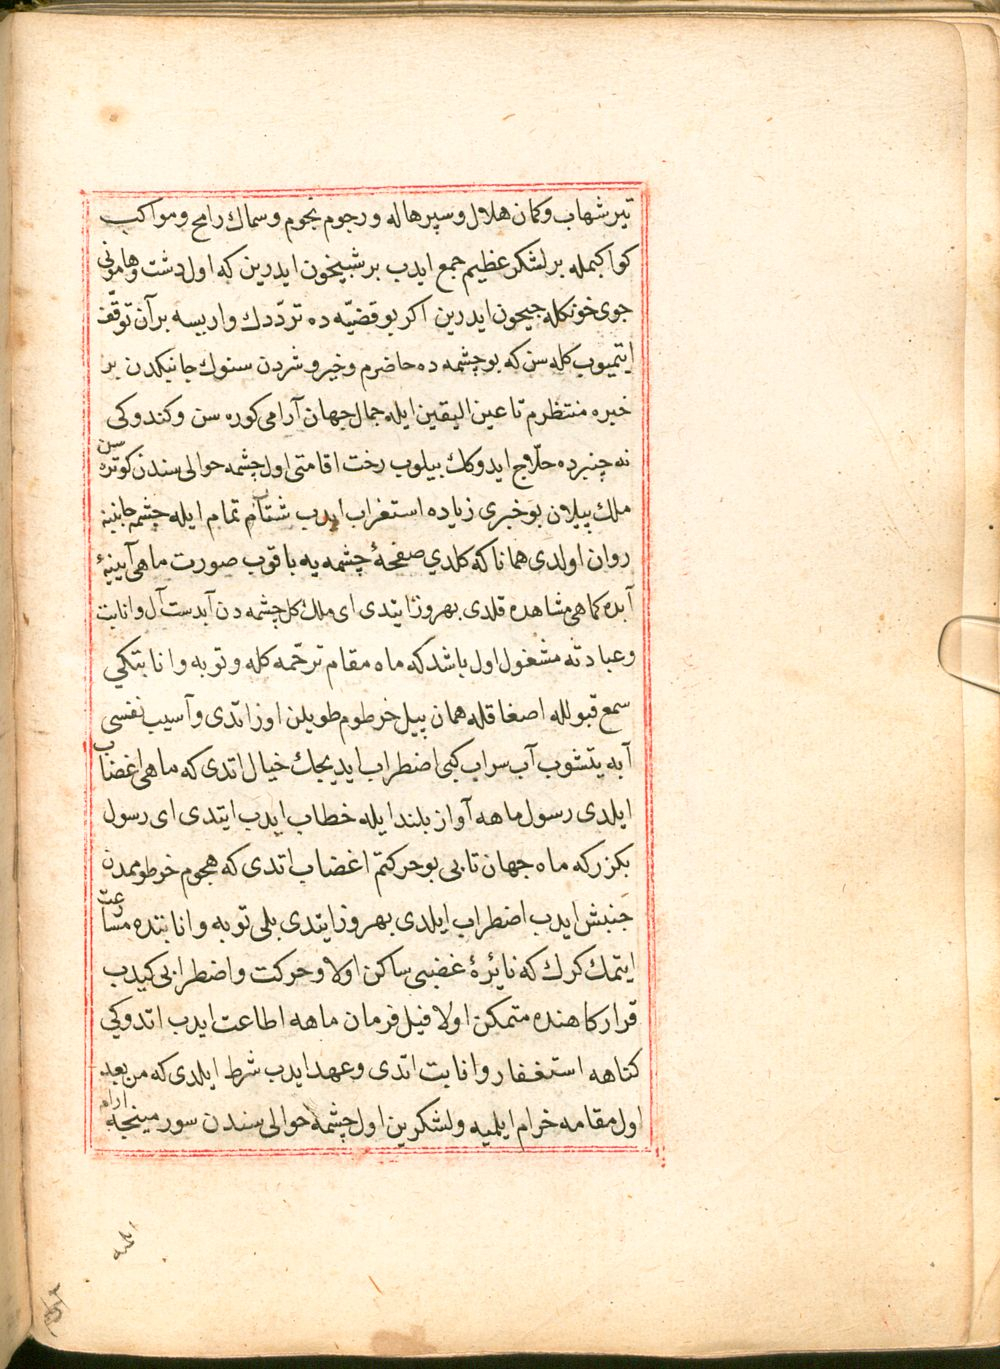 تیر شهاب و کمان هلال و سپر هاله و رجوم نجوم و سماك رامح و مواکب
کواکبمله بر لشکر عظیم جمع ایدب بر شبیخون ایدرین که اول دشت و هامونی
جوی خونکله جیحون ایدرین اکر بو قضیّه ده تردّدك واریسه بر آن توقّف
ایتمیوب کله سن که بو چشمه ده حاضرم و خیر و شردن سنوك جانبکدن بر
خبره منتظرم تا عین الیقین ایله جمال جهان آرامی کوره سن و کندوکی
نه چنبرده حلّاج ایدوکك بیلوب رخت اقامتی اول چشمه حوالی سندن کوتره سن
ملك پیلان بو خبری زیاده استغراب ایدب شتاب تمام ایله چشمه جانبینه
روان اولدی همانا که کلدی صفحهٔ چشمه یه باقوب صورت ماهی آیینهٔ
آبده کماهی مشاهده قلدی بهروز ایتدی ای ملك کل چشمه دن آبدست آل و انابت
و عبادته مشغول اول باشد که ماه مقام ترحّمه کله و توبه و انابتکی
سمع قبولله اصغا قله همان پیل خرطوم طویلن اوزاتدی و آسیب نفسی
آبه یتشوب آب سراب کبی اضطراب ایدیجك خیال اتدی که ماهی اغضاب
ایلدی رسول ماهه آواز بلند ایله خطاب ایدب ایتدی ای رسول
بکزر که ماه جهان تابی بو حرکتم اغضاب اتدی که هجوم خرطوممدن
جنبش ایدب اضطراب ایلدی بهروز ایتدی بلی توبه و انابتده مسارعت
ایتمك کرك که نایرهٔ غضبی ساکن اولا و حرکت و اضطرابی کیدب
قرارکاهنده متمکن اولا فیل فرمان ماهه اطاعت ایدب اتدوکی
کناهه استغفار و انابت اتدی و عهد ایدب شرط ایلدی که من بعد
اول مقامه خرام ایلمیه و لشکرین اول چشمه حوالی سندن سورمینجه آرام
ایلمیه